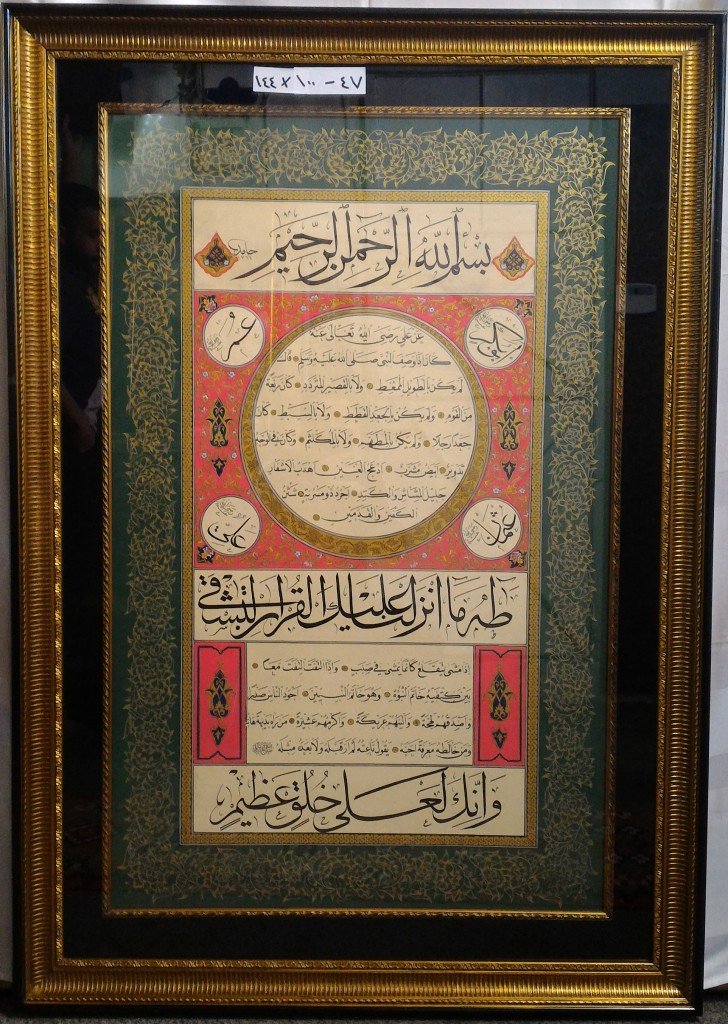 ١٤٤ × ١٠٠ – ٤٧
بسم الله الرحمن الرحيم
حامد
عن علي رضي الله تعالى عنه
كان اذا وصف النبي صلى الله عليه وسلم قال
لم يكن بالطويل الممغط ولا بالقصير المتردد كان ربعة
من القوم ولم يكن بالجعد القطط ولا بالسبط كان
جعدا رجلا ولم يكن بالمطهم ولا بالمكلثم وكان في الوجه
تدوير ابيض مشرب ادعج العينين اهدب الاشفار
جليل المشاش والكتد اجرد ذو مسربة شثن
الكفين والقدمين
ابو بكر
عمر
عثمان
علي
طه ما انزلنا عليك القرآن لتشقى
اذا مشى يتقلع كانما يمشي في صبب واذا التفت التفت معا
بين كتفيه خاتم النبوة وهو خاتم النبيين اجود الناس صدرا
واصدقهم لهجة والينهم عريكة واكرمهم عشيرة من رآه بديهة هابه
ومن خالطه معرفة احبه يقول ناعته لم ار قبله ولا بعده مثله
وانك لعلى خلق عظيم